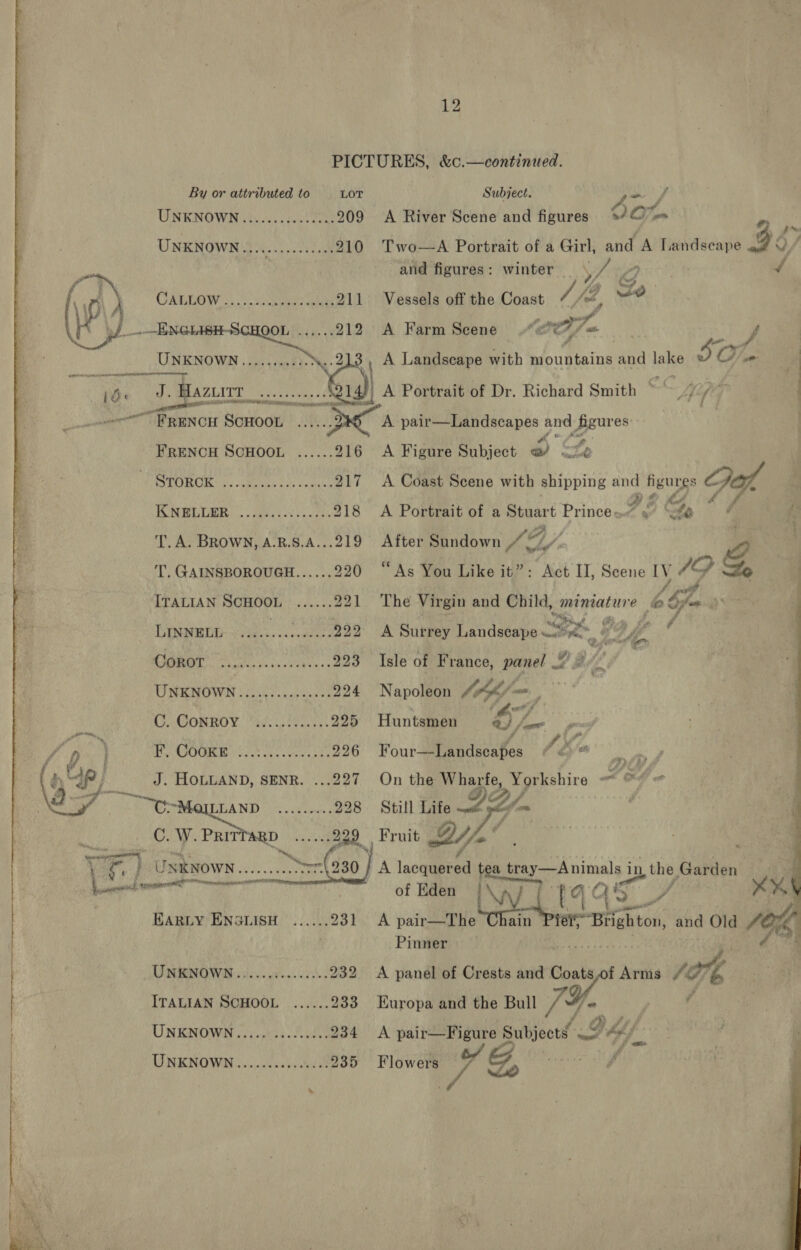 12
PICTURES, &c.—continued.
By or attributed to LOT Subject.
UNKNOWN..............209 A River Scene and figures
UNKNOWN..............210 Two—A Portrait of a Girl, and A Landscape
and figures: winter
CALLOW..............211 Vessels off the Coast
ENGLISH SCHOOL ......212 A Farm Scene
UNKNOWN..............213 A Landscape with mountains and lake
J. HAZLITT ............214 A Portrait of Dr. Richard Smith
FRENCH SCHOOL ......215 A pair—Landscapes and figures
FRENCH SCHOOL ......216 A Figure Subject
STORCK ..............217 A Coast Scene with shipping and figures
KNELLER ..............218 A Portrait of a Stuart Prince
T. A. BROWN, A.R.S.A...219 After Sundown
T. GAINSBOROUGH......220 "As You Like it": Act II, Scene IV
ITALIAN SCHOOL ......221 The Virgin and Child, miniature
LINNELL ..............222 A Surrey Landscape
COROT ..............223 Isle of France, panel
UNKNOWN..............224 Napoleon
C. CONROY ............225 Huntsmen
F. COOKE ..............226 Four—Landscapes
J. HOLLAND, SENR. ...227 On the Wharfe, Yorkshire
C. MOILLAND .........228 Still Life
C. W. PRITTARD ......229 Fruit
UNKNOWN..............230 A lacquered tea tray—Animals in the Garden
of Eden
EARLY ENGLISH ......231 A pair—The Chain Pier, Brighton, and Old
Pinner
UNKNOWN..............232 A panel of Crests and Coats of Arms
ITALIAN SCHOOL ......233 Europa and the Bull
UNKNOWN..............234 A pair—Figure Subjects
UNKNOWN..............235 Flowers